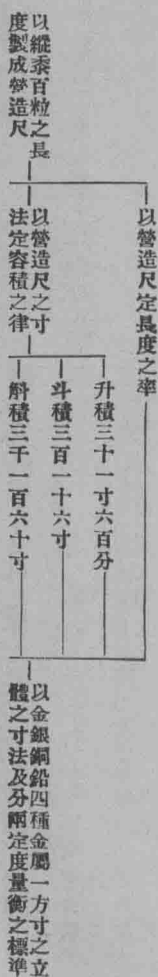 以縱黍百粒之長
度製成營造尺
以營造尺定長度之率
以營造尺之寸
法定容積之律
升積三十一寸六百分
斗積三百一十六寸
斛積三千一百六十寸
以金銀銅鉛四種金屬一方寸之立
體之寸法及分兩定度量衡之標準